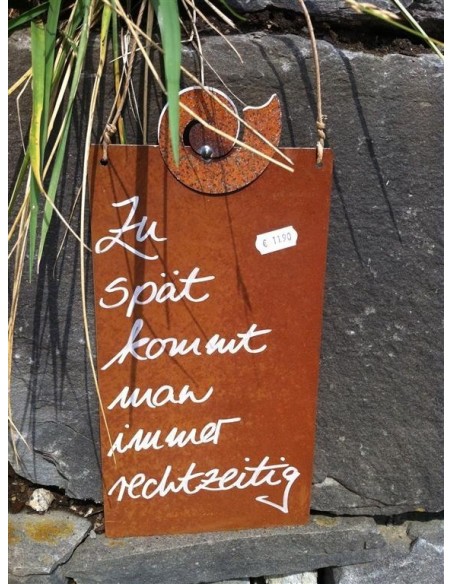 Zu
€ 11.90
spät
kommt
man
immer
rechtzeitig